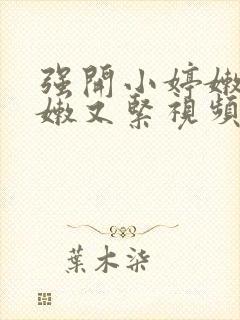 强開小婷嫩
嫩又緊視頻
葉木柒